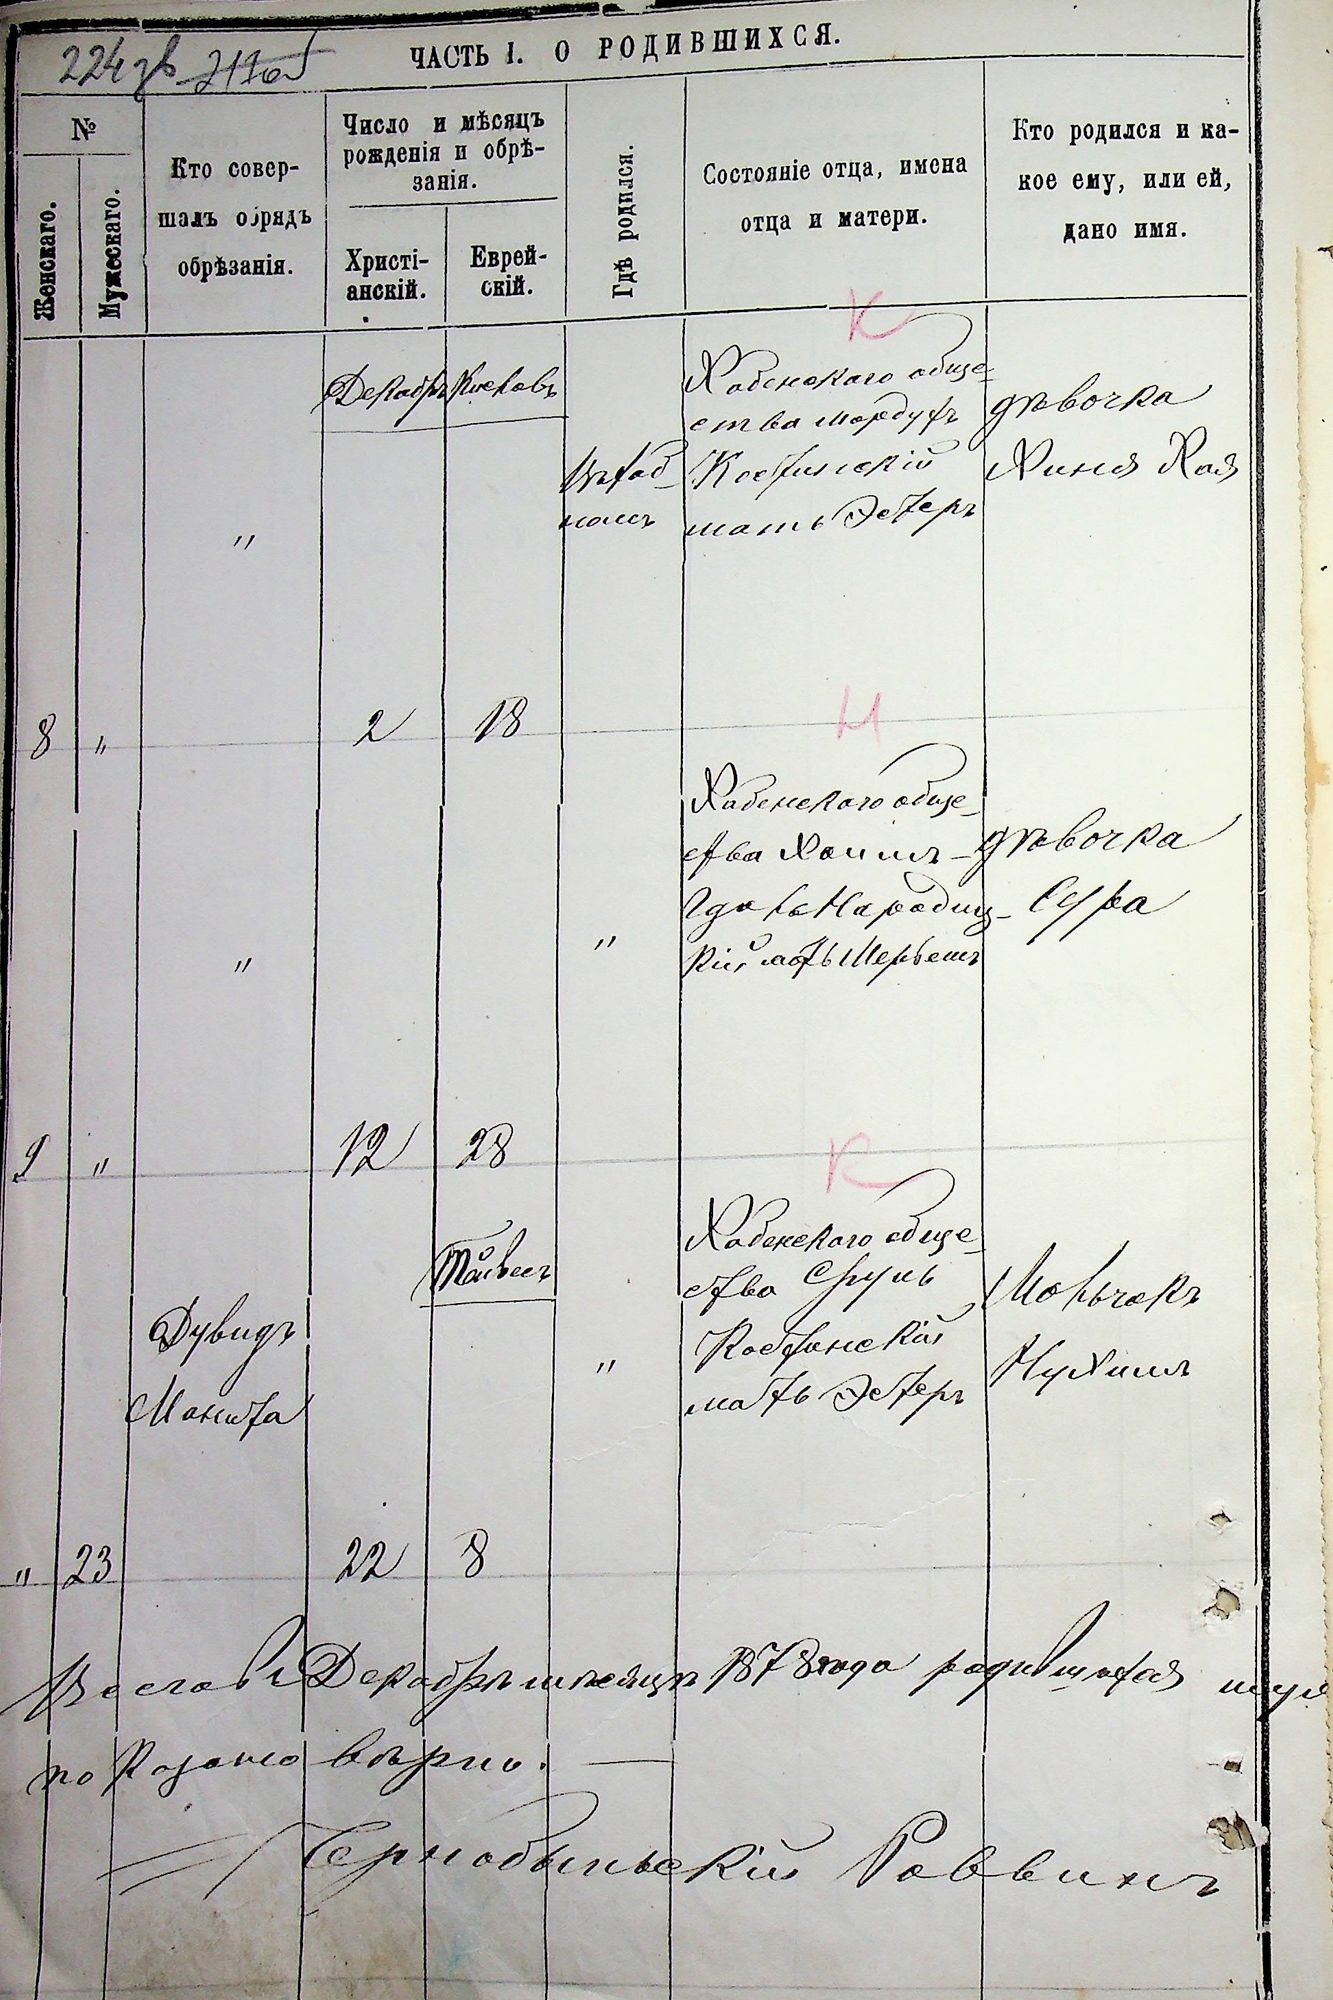 224 зв
ЧАСТЬ I. О РОДИВШИХСЯ.
№
Женскаго.
Мужескаго.
Кто совер-
шалъ обрядъ
обрѣзанія.
Число и мѣсяцъ
рожденія и обрѣ-
занія.
Христі-
анскій.
Еврей-
скій.
Гдѣ родился.
Состояніе отца, имена
отца и матери.
Кто родился и ка-
кое ему, или ей,
дано имя.
К
Декабрь Кислевъ
Хабенскаго обще-
ства Мордухъ
Костинскій
мать Эстеръ
дѣвочка
Хиня Хая
"
8 " 2 18
Н
Хабенскаго обще-
ства Хаимъ-
Гдаль Народиц-
кій мать Мерьемъ
дѣвочка
Сура
" "
9 " 12 28
К
Тайвесъ
Дувидъ
"
Хабенскаго обще-
ства Сруль
Костинскій
мать Эстеръ
Мальчикъ
Нухимъ
" 23 22 8
Декабрѣ мѣсяцѣ 1878 года родившихся
вѣрно.
Чернобыльскій Раввинъ